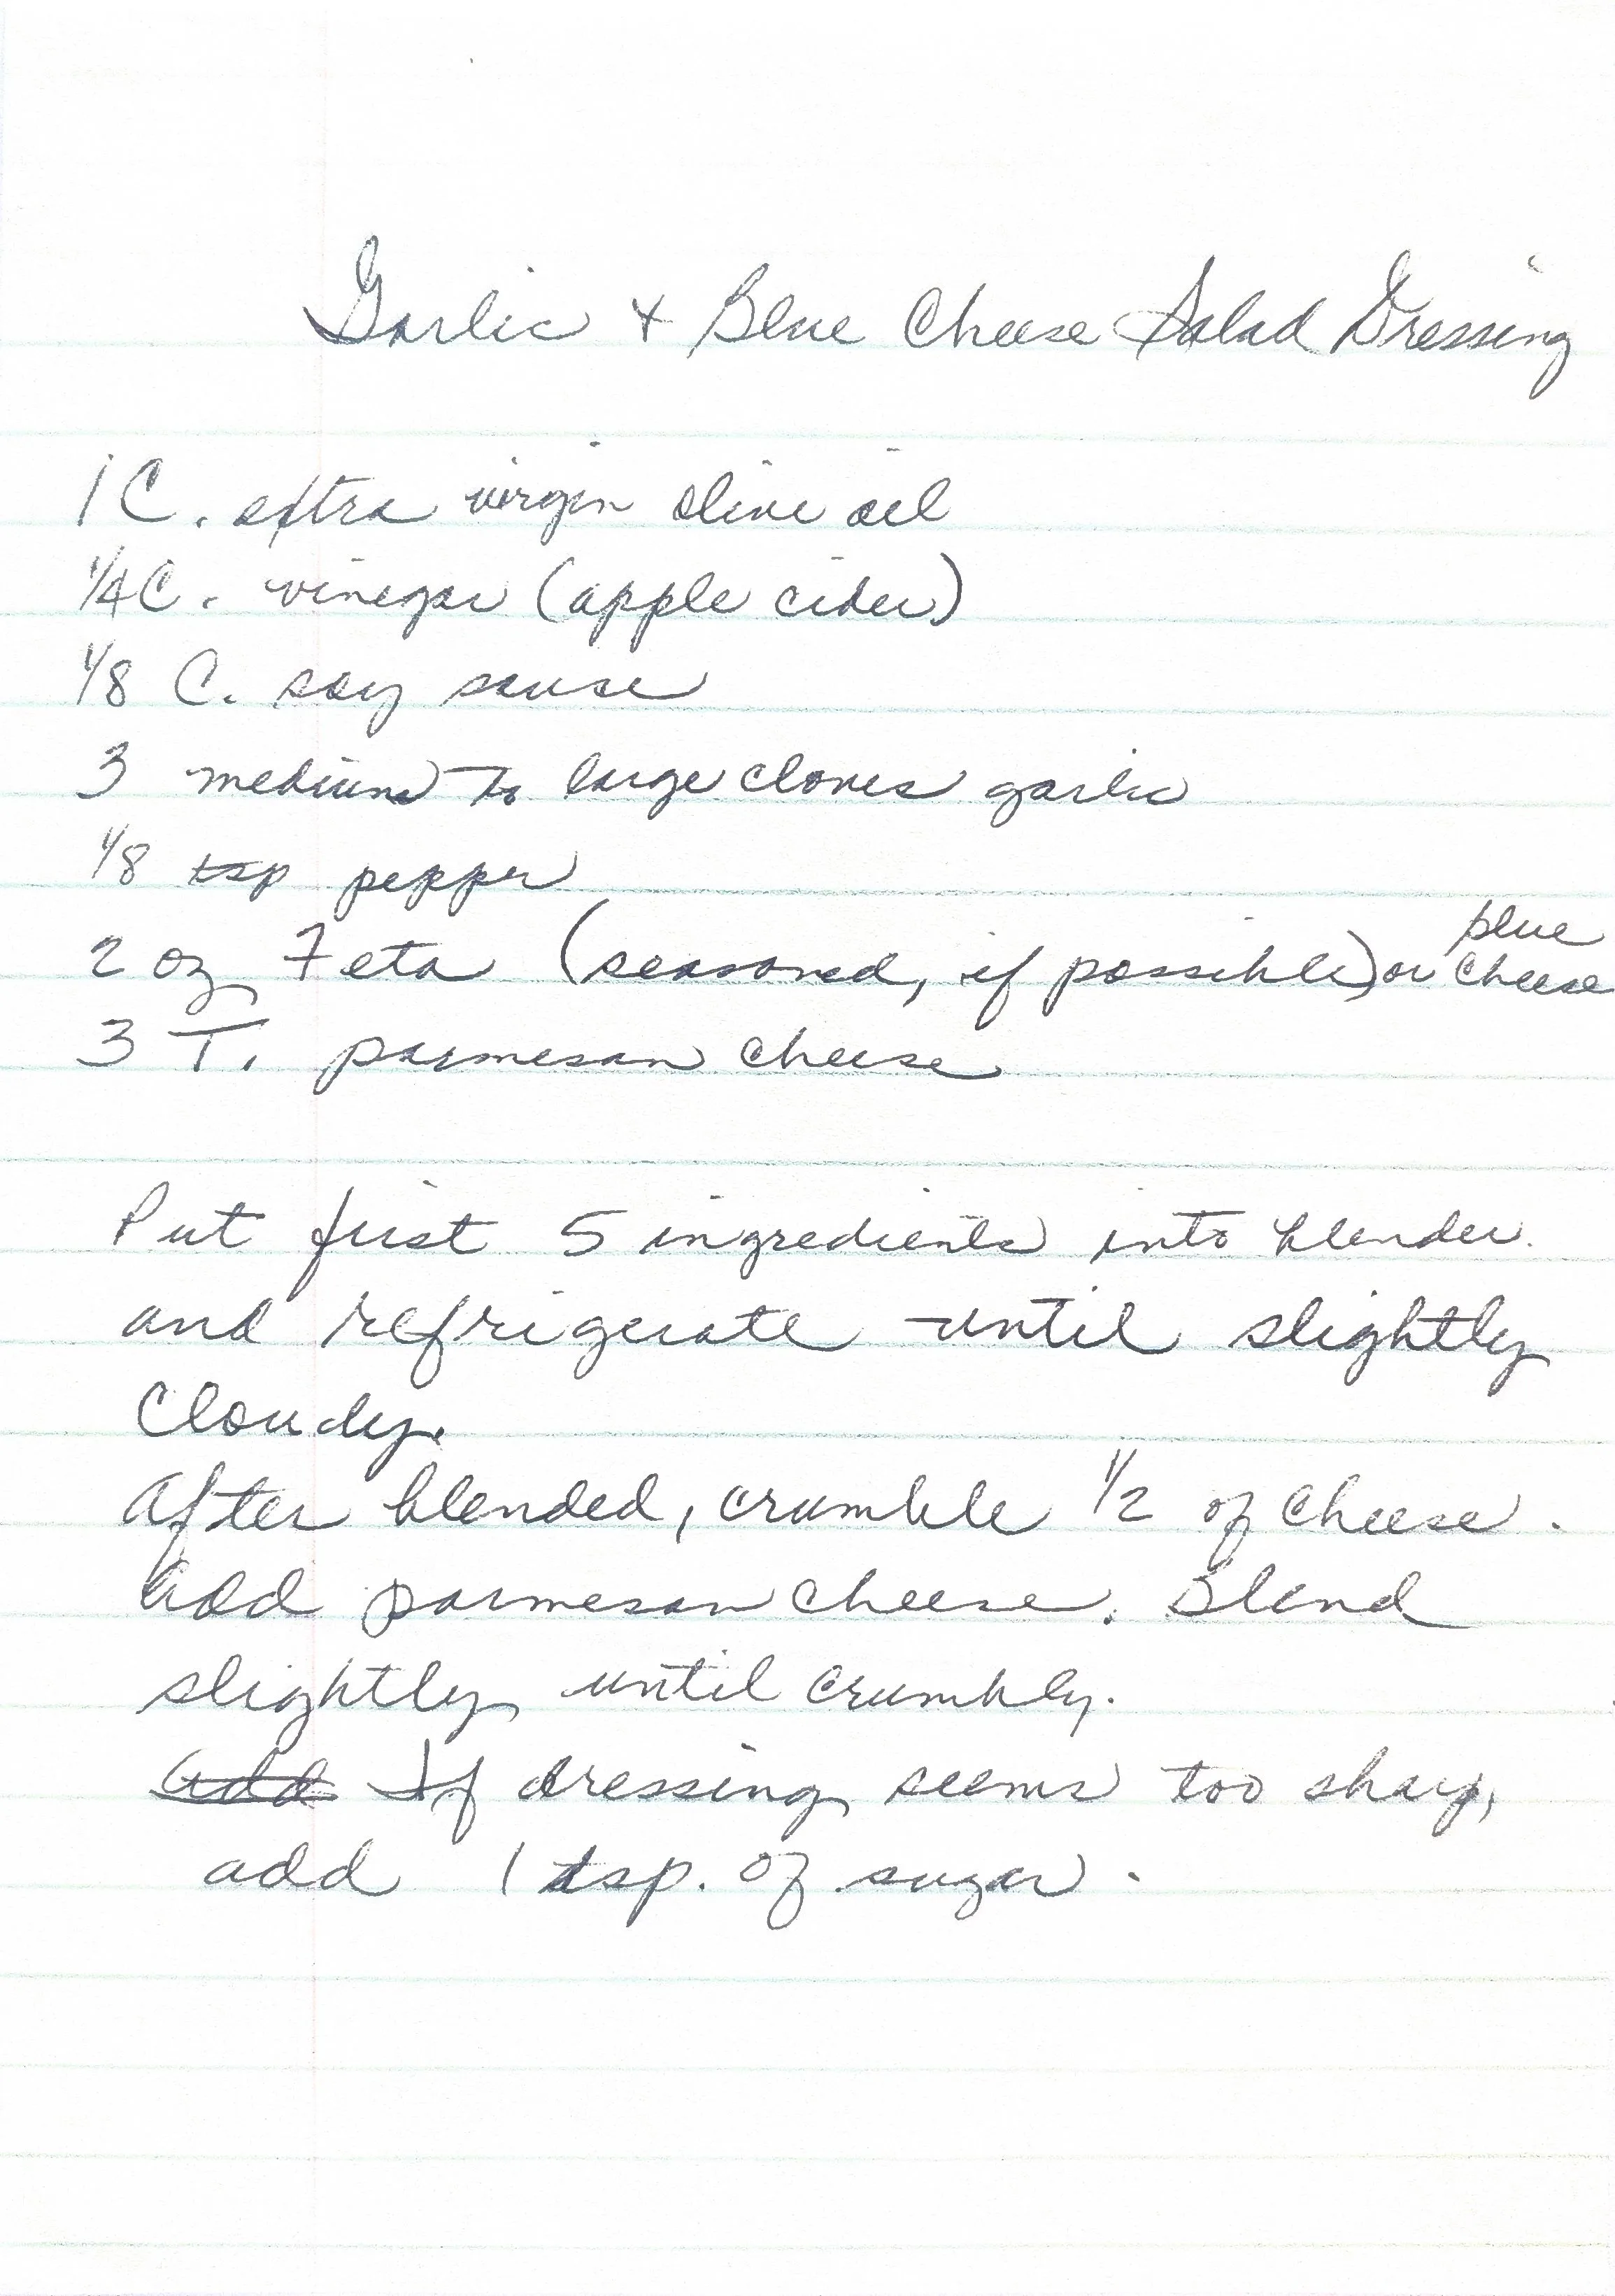 Garlic + Blue Cheese Salad Dressing
1 C. extra virgin olive oil
1/4 C. vinegar (apple cider)
1/8 C. soy sause
3 medium to large cloves garlic
1/8 tsp pepper
2 oz Feta (seasoned, if possible) or blue cheese
3 T. parmesan cheese
Put first 5 ingredients into blender.
and refrigerate until slightly
cloudy.
After blended, crumble 1/2 of cheese.
Add parmesan cheese. Blend
slightly until crumbly.
Add If dressing seems too sharp,
add 1 tsp. of sugar.